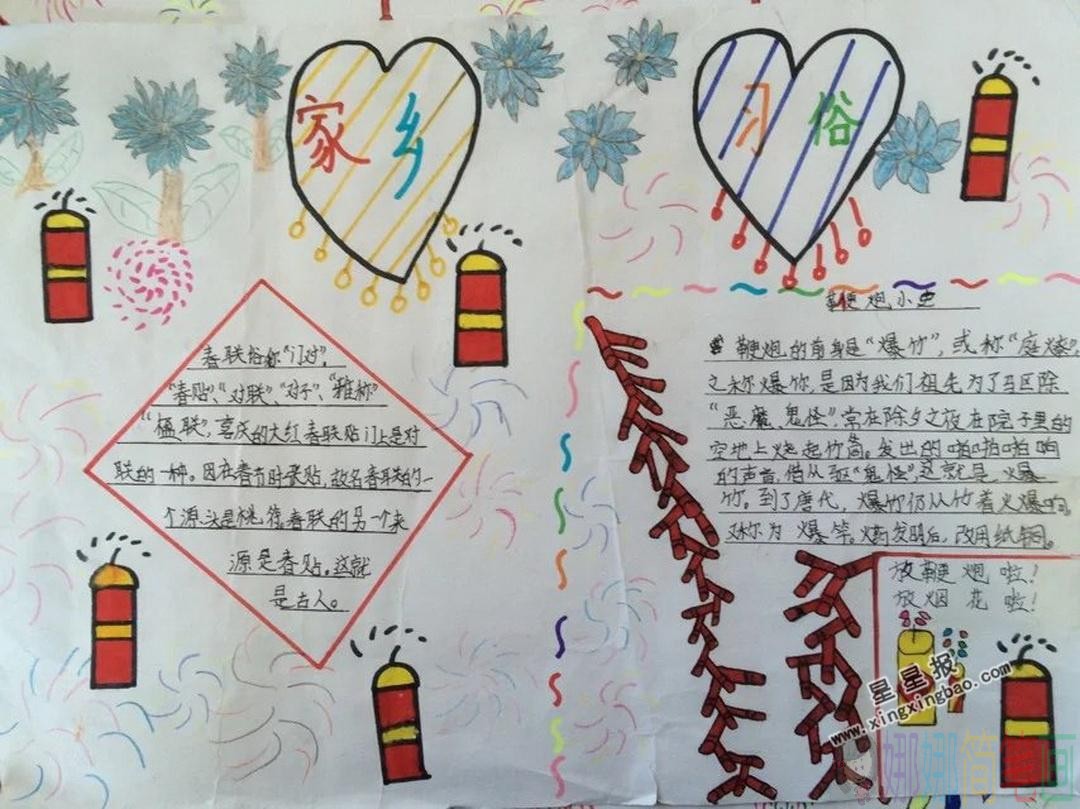 家乡
习俗
春联俗称"门对"、
"春贴"、"对联"、"对子"、"雅称"
"楹联"，喜庆的大红春联贴门上是对
联的一种。因在春节时张贴，故名春联的一
个源头是桃符。春联的另一个来
源是春贴。这就
是古人。
鞭炮小史
鞭炮的前身是"爆竹"，或称"庭燎"，
之称爆竹，是因为我们祖先为了马区除
"恶魔、鬼怪"，常在除夕之夜在院子里的
空地上烧起竹筒。发出的啪啪啪响
的声音，借以驱"鬼怪"，这就是，爆
竹。到了唐代，爆竹仍从竹着火爆响，
又称为 爆竿。火药发明后，改用纸铜。
放鞭炮啦！
放烟花啦！
星星报
www.xingxingbao.com
娜娜简笔画